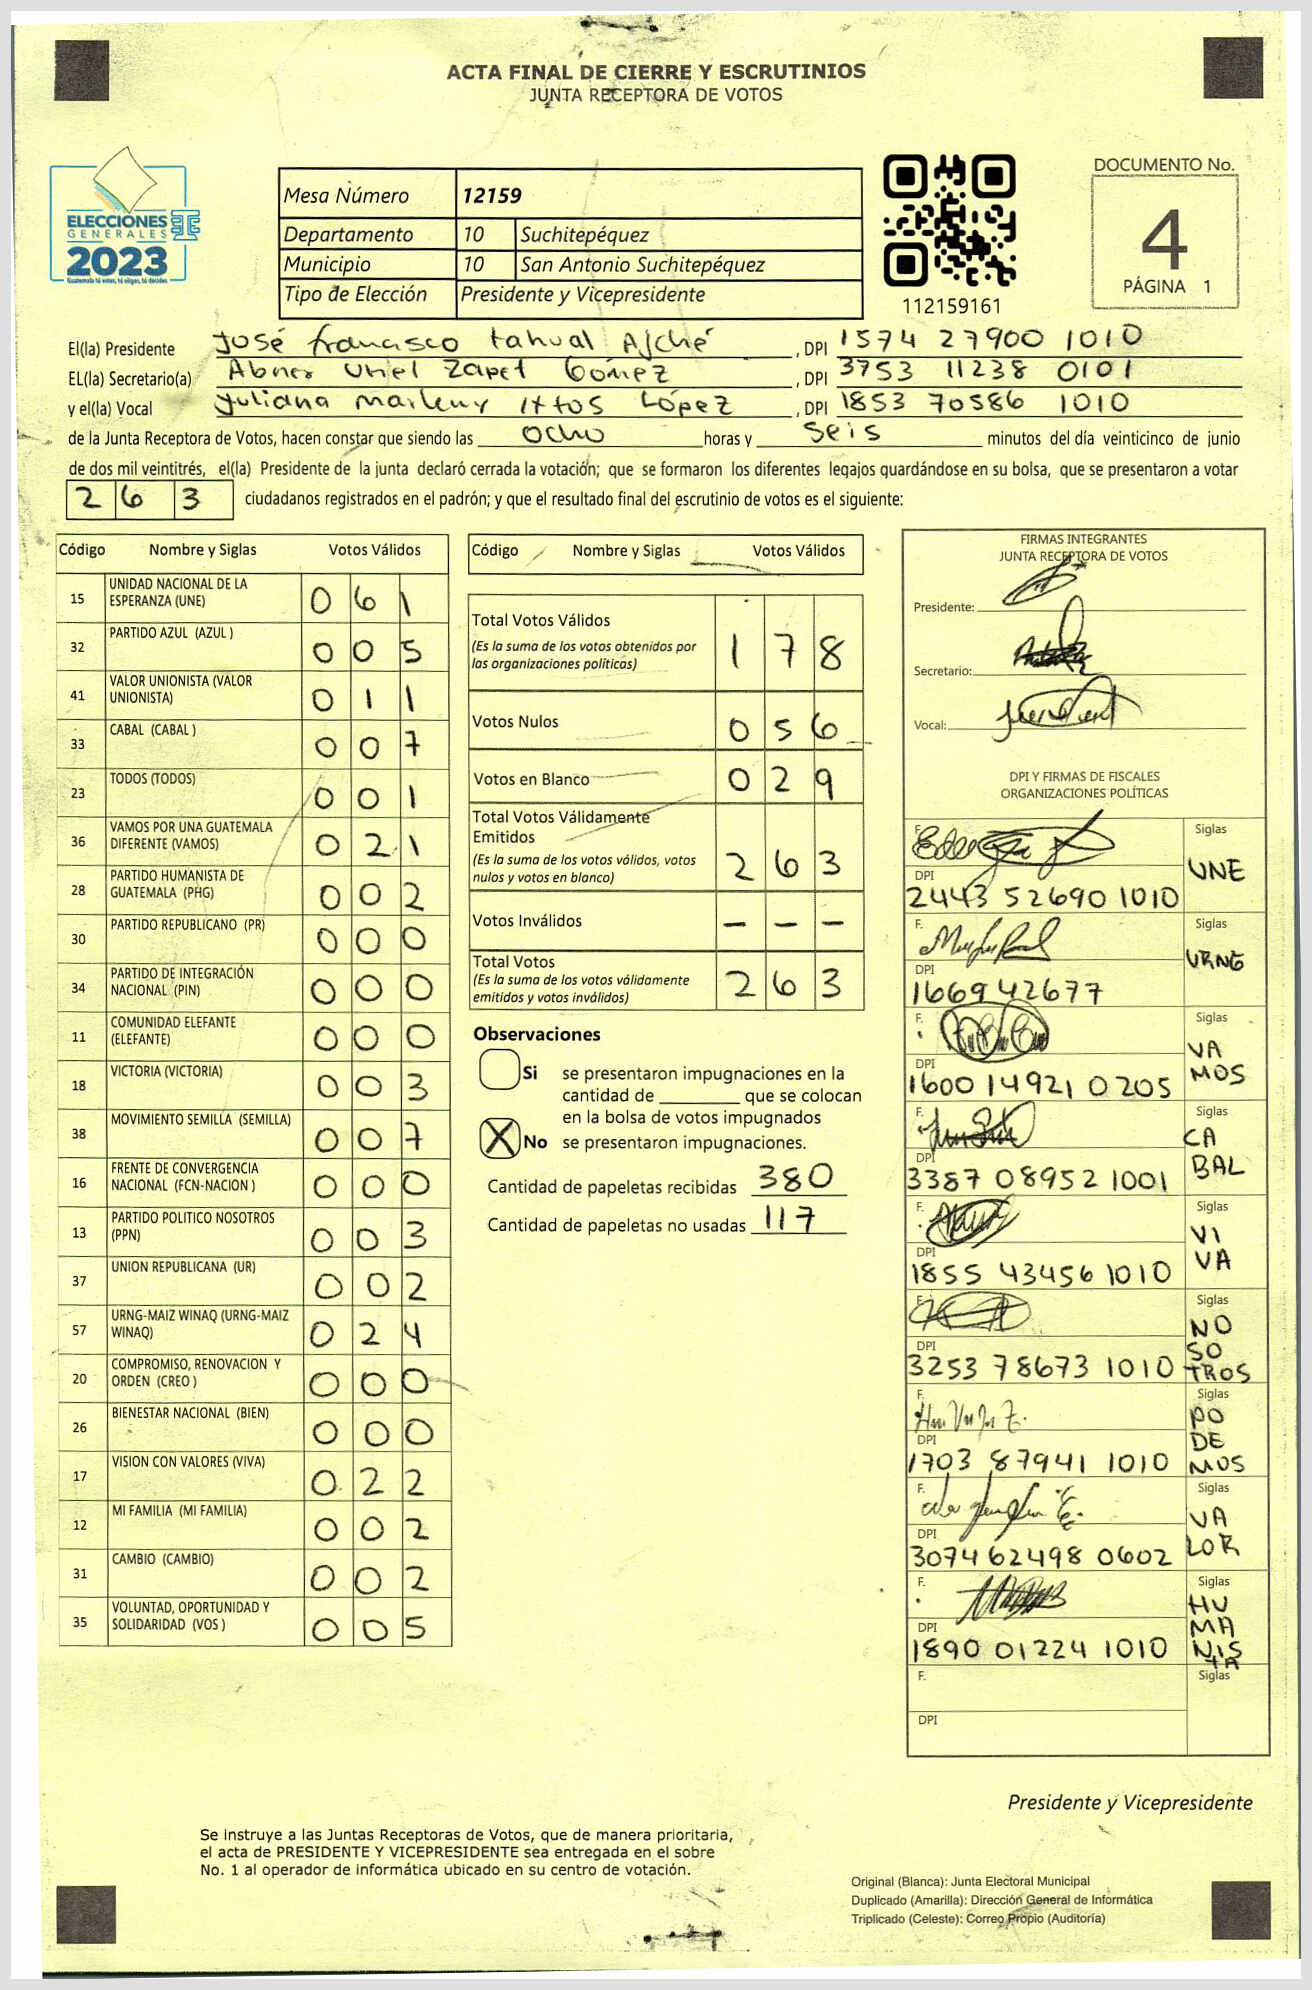 ACTA FINAL DE CIERRE Y ESCRUTINIOS
JUNTA RECEPTORA DE VOTOS
ELECCIONES
GENERALES
2023
Guatemala tú votas, tú eliges, tú decides
Mesa Número 12159
Departamento 10 Suchitepéquez
Municipio 10 San Antonio Suchitepéquez
Tipo de Elección Presidente y Vicepresidente
112159161
DOCUMENTO No.
4
PÁGINA 1
El(la) Presidente José francisco tahual Ajché, DPI 1574 27900 1010
EL(la) Secretario(a) Abner Uriel Zapet Gómez, DPI 3753 11238 0101
y el(la) Vocal Yuliana Marleny Ixtos López, DPI 1853 70586 1010
de la Junta Receptora de Votos, hacen constar que siendo las ocho horas y seis minutos del día veinticinco de junio
de dos mil veintitrés, el(la) Presidente de la junta declaró cerrada la votación; que se formaron los diferentes legajos guardándose en su bolsa, que se presentaron a votar
2 6 3 ciudadanos registrados en el padrón; y que el resultado final del escrutinio de votos es el siguiente:
Código Nombre y Siglas Votos Válidos
15 UNIDAD NACIONAL DE LA ESPERANZA (UNE) 0 6 1
32 PARTIDO AZUL (AZUL ) 0 0 5
41 VALOR UNIONISTA (VALOR UNIONISTA) 0 1 1
33 CABAL (CABAL ) 0 0 7
23 TODOS (TODOS) 0 0 1
36 VAMOS POR UNA GUATEMALA DIFERENTE (VAMOS) 0 2 1
28 PARTIDO HUMANISTA DE GUATEMALA (PHG) 0 0 2
30 PARTIDO REPUBLICANO (PR) 0 0 0
34 PARTIDO DE INTEGRACIÓN NACIONAL (PIN) 0 0 0
11 COMUNIDAD ELEFANTE (ELEFANTE) 0 0 0
18 VICTORIA (VICTORIA) 0 0 3
38 MOVIMIENTO SEMILLA (SEMILLA) 0 0 7
16 FRENTE DE CONVERGENCIA NACIONAL (FCN-NACION ) 0 0 0
13 PARTIDO POLITICO NOSOTROS (PPN) 0 0 3
37 UNION REPUBLICANA (UR) 0 0 2
57 URNG-MAIZ WINAQ (URNG-MAIZ WINAQ) 0 2 4
20 COMPROMISO, RENOVACION Y ORDEN (CREO ) 0 0 0
26 BIENESTAR NACIONAL (BIEN) 0 0 0
17 VISION CON VALORES (VIVA) 0 2 2
12 MI FAMILIA (MI FAMILIA) 0 0 2
31 CAMBIO (CAMBIO) 0 0 2
35 VOLUNTAD, OPORTUNIDAD Y SOLIDARIDAD (VOS ) 0 0 5
Código Nombre y Siglas Votos Válidos
Total Votos Válidos 1 7 8
(Es la suma de los votos obtenidos por
las organizaciones políticas)
Votos Nulos 0 5 6
Votos en Blanco 0 2 9
Total Votos Válidamente
Emitidos 2 6 3
(Es la suma de los votos válidos, votos
nulos y votos en blanco)
Votos Inválidos - - -
Total Votos 2 6 3
(Es la suma de los votos válidamente
emitidos y votos inválidos)
Observaciones
Si se presentaron impugnaciones en la
cantidad de ________ que se colocan
en la bolsa de votos impugnados
X No se presentaron impugnaciones.
Cantidad de papeletas recibidas 380
Cantidad de papeletas no usadas 117
FIRMAS INTEGRANTES
JUNTA RECEPTORA DE VOTOS
Presidente:
Secretario:
Vocal:
DPI Y FIRMAS DE FISCALES
ORGANIZACIONES POLÍTICAS
F. Siglas UNE
DPI 2443 52690 1010
F. Siglas URNG
DPI 166942677
F. Siglas VAMOS
DPI 1600 14921 0205
F. Siglas CABAL
DPI 3387 08952 1001
F. Siglas VIVA
DPI 1855 43456 1010
F. Siglas NOSOTROS
DPI 3253 78673 1010
F. Siglas PODEMOS
DPI 1703 87941 1010
F. Siglas VALOR
DPI 3074 62498 0602
F. Siglas HUMANISTA
DPI 1890 01224 1010
F. Siglas
DPI
Presidente y Vicepresidente
Se instruye a las Juntas Receptoras de Votos, que de manera prioritaria,
el acta de PRESIDENTE Y VICEPRESIDENTE sea entregada en el sobre
No. 1 al operador de informática ubicado en su centro de votación.
Original (Blanca): Junta Electoral Municipal
Duplicado (Amarilla): Dirección General de Informática
Triplicado (Celeste): Correo Propio (Auditoría)